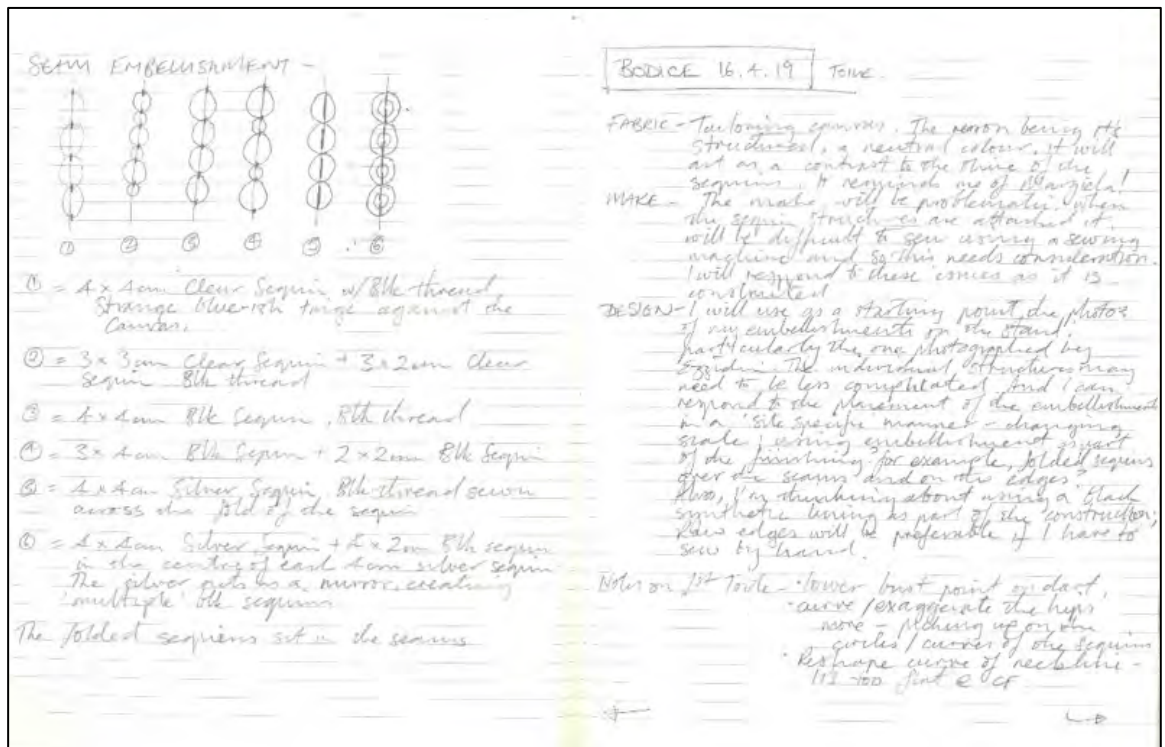 SEAM EMBELLISHMENT -
① ② ③ ④ 5 ⑥
① = 4 x 4cm Clear Sequin w/ Blk thread
Strange blue-ish tinge against the
Canvas.
② = 3 x 3cm Clear Sequin + 3 x 2cm Clear
sequin Blk thread
③ = 4 x 4cm Blk Sequin, Blk thread
④ = 3 x 4cm Blk Sequin + 2 x 2cm Blk Sequin
⑤ = 4 x 4cm Silver Sequin, Blk thread sewn
across the fold of the sequin
⑥ = 4 x 4cm Silver Sequin + 4 x 2cm Blk sequin
in the centre of each 4cm silver sequin
The silver acts as a mirror, creating
'multiple' blk sequins
The folded sequiens sit in the seams
BODICE 16.4.19 TOILE.
FABRIC - Tailoring canvas. The reason being its
structured, a neutral colour. it will
act as a contrast to the shine of the
sequins. It reminds me of Margiela!
MAKE - The make will be problematic. When
the sequin structures are attached it
will be difficult to sew using a sewing
machine and so this needs consideration.
I will respond to these issues as it is
constructed
DESIGN - I will use as a starting point, the photos
of my embellishments on the stand,
particularly the one photographed by
The individual structures may
need to be less complicated and I can
respond to the placement of the embellishment
in a 'site specific manner - changing
scale, using embellishment as part
of the finishing for example, folded sequins
over the seams and on the edges
Also, I'm thinking about using a black
synthetic lining as part of the construction;
Raw edges will be preferable if I have to
sew by hand.
Notes on 1st Toile - • lower bust point on dart,
• curve / exaggerate the hips
more - picking up on the
circles / curves of the sequins
• Reshape curve of neckline -
its too flat @ CF